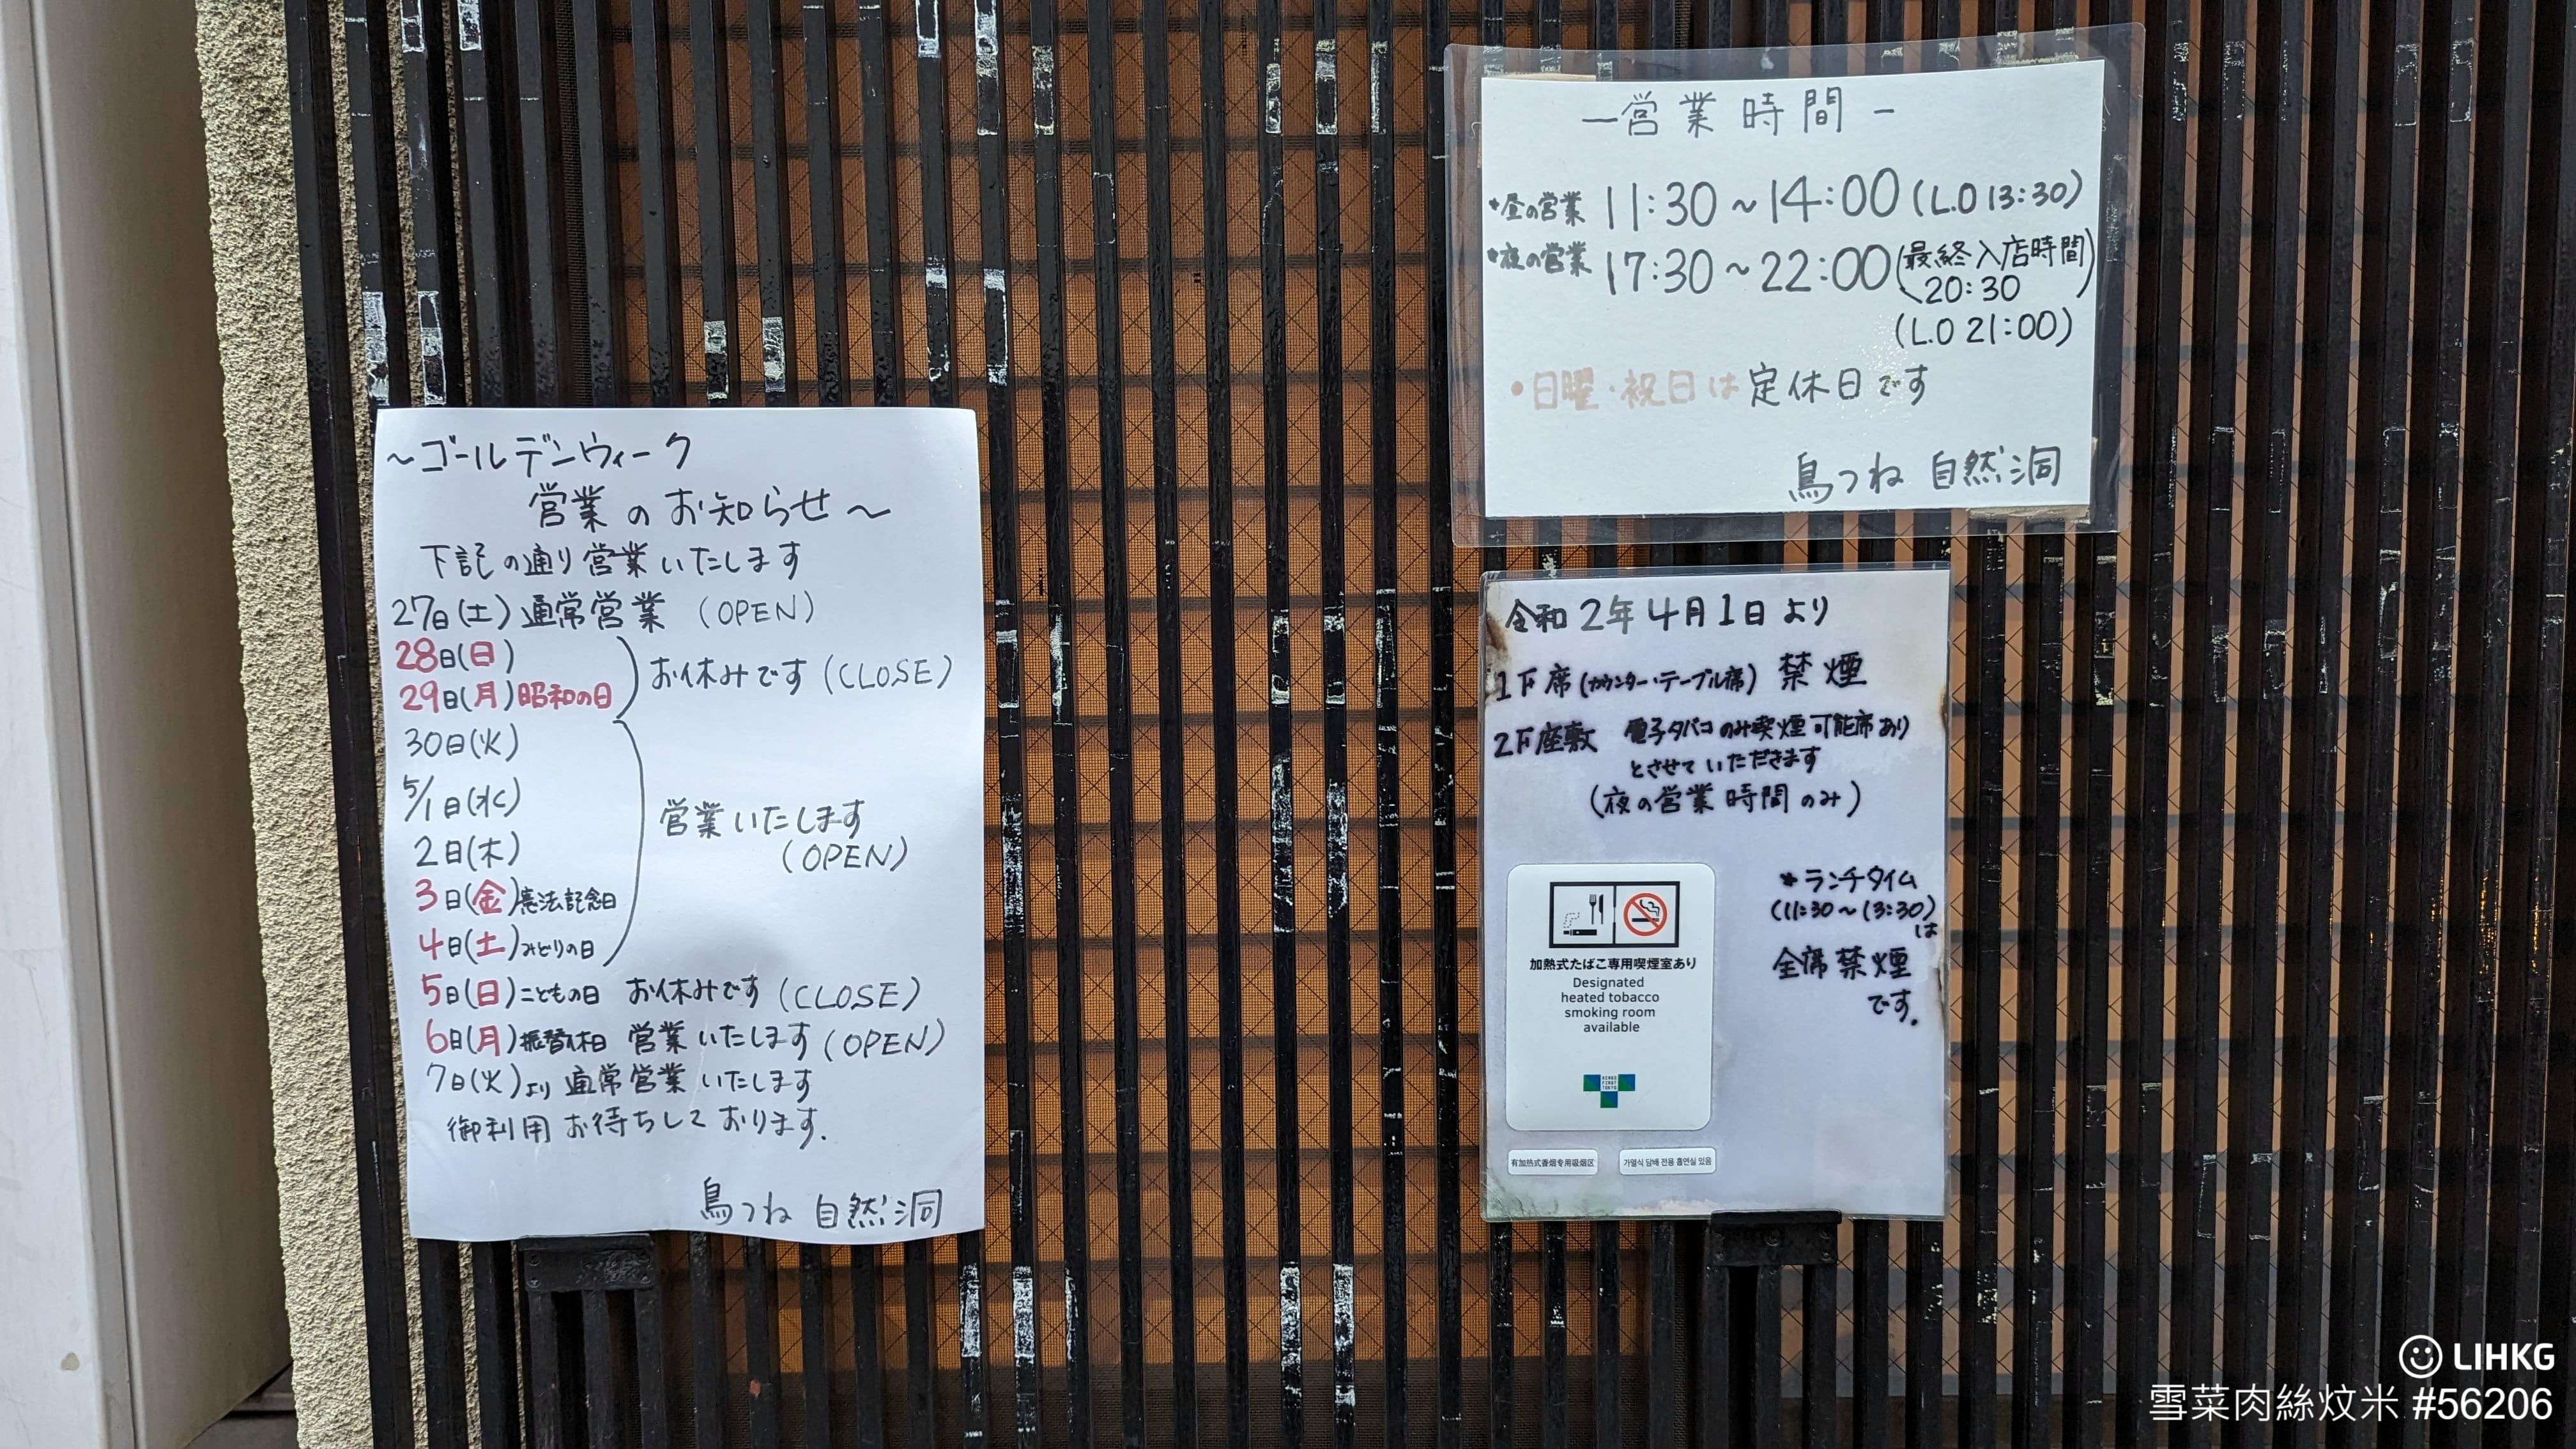 ～ゴールデンウィーク
営業のお知らせ～
下記の通り営業いたします
27日(土)通常営業 (OPEN)
28日(日)
29日(月)昭和の日
お休みです(CLOSE)
30日(火)
5/1日(水)
2日(木)
3日(金)憲法記念日
4日(土)みどりの日
営業いたします
(OPEN)
5日(日)こどもの日 お休みです(CLOSE)
6日(月)振替休日 営業いたします(OPEN)
7日(火)より通常営業いたします
御利用お待ちしております.
鳥つね 自然洞
－営業時間－
*昼の営業 11:30～14:00(L.O 13:30)
*夜の営業 17:30～22:00(最終入店時間
20:30)
(L.O 21:00)
•日曜・祝日は定休日です
鳥つね 自然洞
令和2年4月1日より
1F席(カウンター・テーブル席) 禁煙
2F座敷 電子タバコのみ喫煙可能席あり
とさせていただきます
(夜の営業時間のみ)
*ランチタイム
(11:30～13:30)
は
全席禁煙
です.
加熱式たばこ専用喫煙室あり
Designated
heated tobacco
smoking room
available
有加热式香烟专用吸烟区
가열식 담배 전용 흡연실 있음
LIHKG
雪菜肉絲炆米 #56206